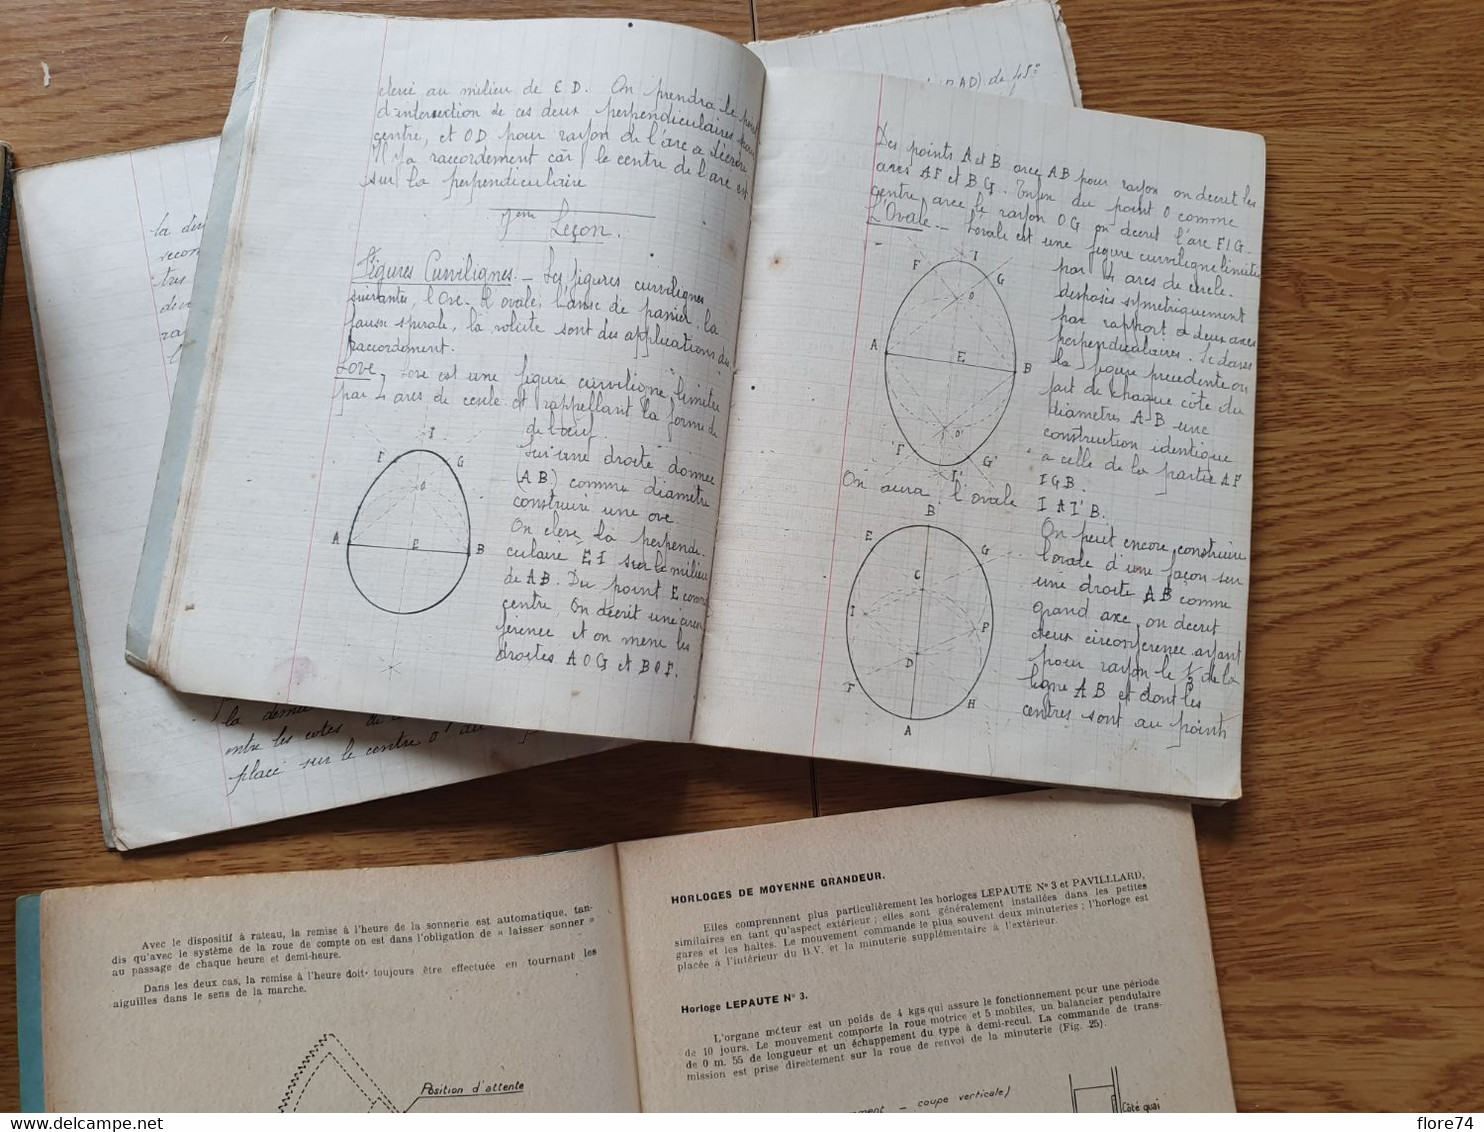 elevé au milieu de E D. On prendra le point
d'intersection de ces deux perpendiculaires pour
centre, et OD pour rayon de l'arc a décrire
Il y a raccordement car le centre de l'arc est
sur la perpendiculaire
7eme Leçon.
Figures Curvilignes. _ Les figures curvilignes
suivantes, l'Ove. L'ovale, l'anse de panier, la
fausse spirale, la volute sont des applications du
raccordement.
L'ove. L'ove est une figure curviligne limitée
par 4 arcs de cercle et rappellant la forme de
de l'oeuf.
Sur une droite donnee
(AB) comme diamétre
construire une ove.
On elève la perpendi-
culaire EI sur le milieu
de AB. Du point E comme
centre, On décrit une circon
férence et on mene les
droites A O G et B O F.
I
F
G
O
A
E
B
AD) de 45°
Des points A et B avec AB pour rayon on decrit les
arcs AF et BG. Enfin du point O comme
centre avec le rayon OG on decrit l'arc FIG.
L'Ovale _ L'ovale est une figure curviligne limitée
par 4 arcs de cercle.
disposés symetriquement
par rapport a deux axes
perpendiculaires. Si dans
la figure precedente on
fait de chaque côté du
diamètre A-B une
construction identique
a celle de la partie AF
IGB.
On aura l'ovale I A I' B.
On peut encore construire
l'ovale d'une façon sur
une droite AB comme
grand axe, on decrit
deux circonference ayant
pour rayon le 1/3 de la
ligne AB et dont les
centres sont au point
I
F
G
O
A
E
B
O'
F'
G'
I'
B
E
G
C
I
P
D
F
H
A
la der
recon
tres
deu
rap
l
la demi
entre les cotes de
placé sur le centre O'
Avec le dispositif à rateau, la remise à l'heure de la sonnerie est automatique, tan-
dis qu'avec le système de la roue de compte on est dans l'obligation de « laisser sonner »
au passage de chaque heure et demi-heure.
Dans les deux cas, la remise à l'heure doit toujours être effectuée en tournant les
aiguilles dans le sens de la marche.
Position d'attente
HORLOGES DE MOYENNE GRANDEUR.
Elles comprennent plus particulièrement les horloges LEPAUTE N° 3 et PAVILLLARD,
similaires en tant qu'aspect extérieur ; elles sont généralement installées dans les petites
gares et les haltes. Le mouvement commande le plus souvent deux minuteries ; l'horloge est
placée à l'intérieur du B.V. et la minuterie supplémentaire à l'extérieur.
Horloge LEPAUTE N° 3.
L'organe moteur est un poids de 4 kgs qui assure le fonctionnement pour une période
de 10 jours. Le mouvement comporte la roue motrice et 5 mobiles, un balancier pendulaire
de 0 m. 55 de longueur et un échappement du type à demi-recul. La commande de trans-
mission est prise directement sur la roue de renvoi de la minuterie (Fig. 25).
ment _ coupe verticale)
Côté quai
delcampe.net
flore74